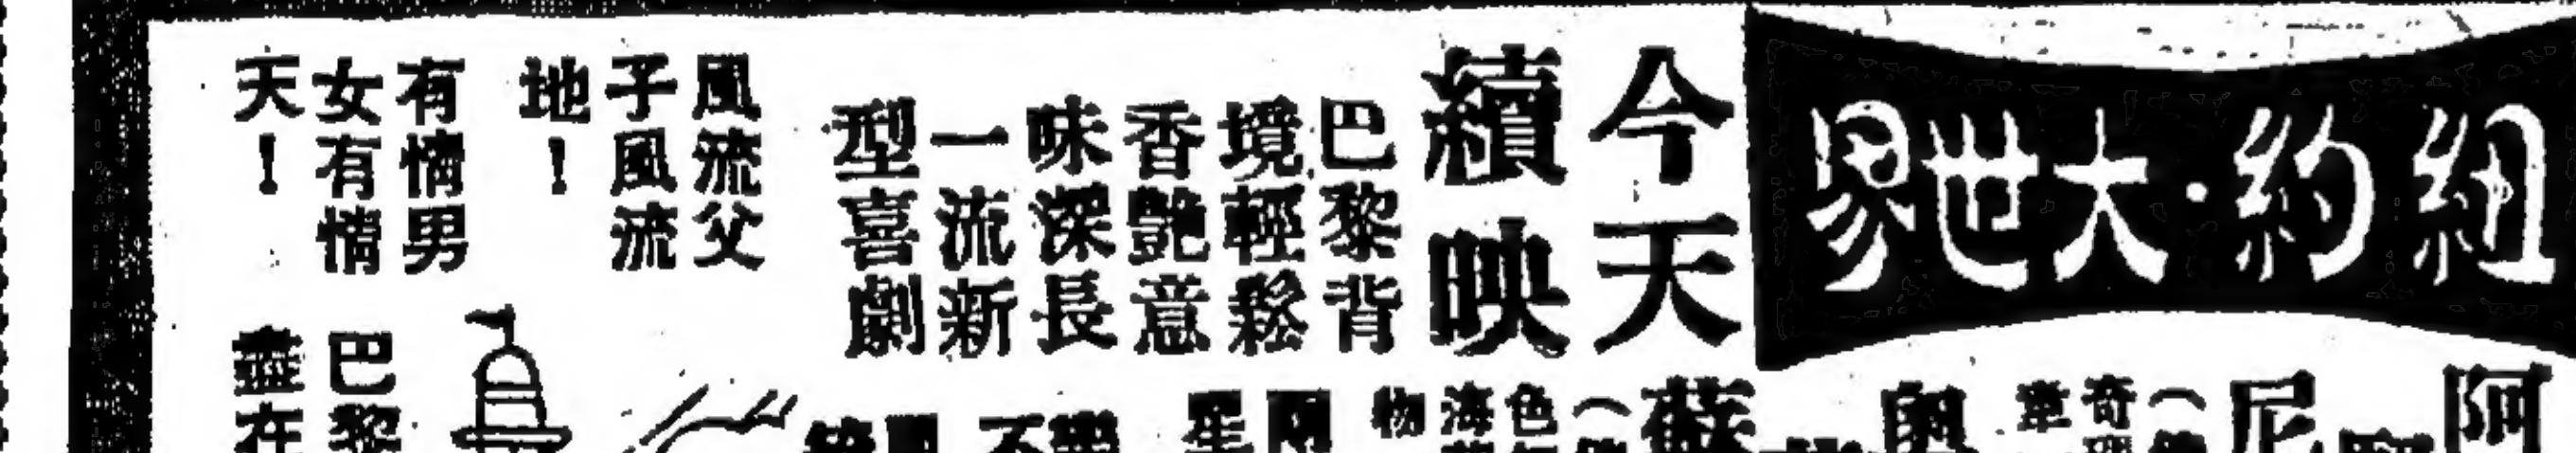 紐約·大世界
今天
續映
巴黎背
境輕鬆
香艷意
味深長
一流新
型喜劇
風流父
子風流
地！
有情男
女有情
天！
巴黎
盡在
阿
尼
（
奇
奧
蘇
（
色
海
物